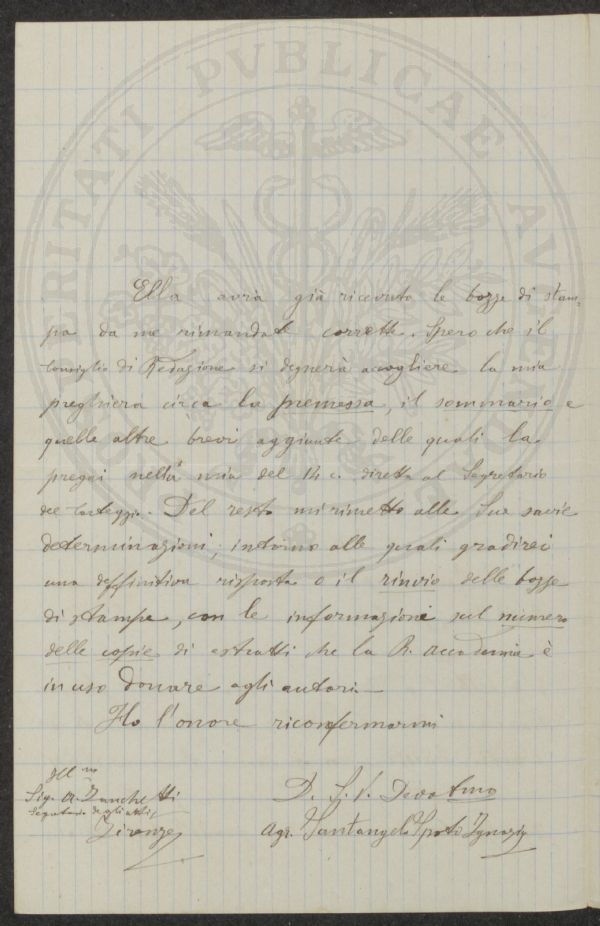 PROSPERITATI PUBLICAE AUGENDAE
Ella avrà già ricevuto le bozze di stam-
pa da me rimandate corrette. Spero che il
Consiglio di Redazione si degnerà accogliere la mia
preghiera circa la premessa, il sommario e
quelle altre brevi aggiunte delle quali la
pregai nella mia del 14 c. diretta al Segretario
del Carteggio. Del resto mi rimetto alle Sue savie
determinazioni, intorno alle quali gradirei
una deffinitiva risposta o il rinvio delle bozze
di stampa, con le informazioni sul numero
delle copie di estratti che la R. Accademia è
in uso donare agli autori.—
Ho l'onore riconfermarmi
Ill mo
Sig. A. Zanchetti
Segretario degli atti,
Firenze
D. S. V. Devotmo
Agr. Santangelo Spoto Ignazio